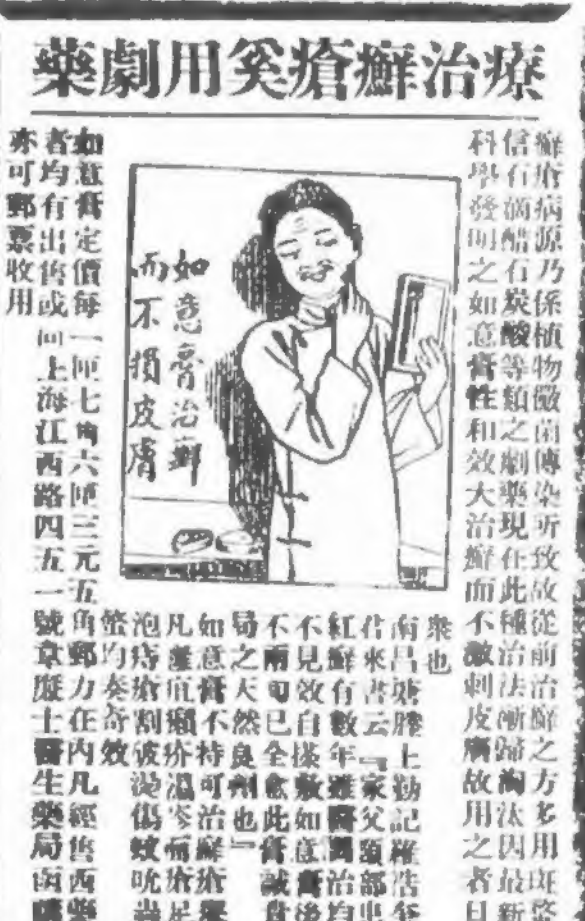 療治癬瘡奚用劇藥
癬瘡病源乃係植物黴菌傳染所致故從前治癬之方多用斑
信石滴醋石炭酸等類之劇藥現在此種治法漸歸淘汰因最新
科學發明之如意膏性和效大治癬而不激刺皮膚故用之者日
眾也
如意膏治癬
而不損皮膚
南昌塘塍上勤記羅浩
君來書云『家父頭部出
紅癬有數年雖醫治均
不見效自搽敷如意膏後
不兩旬已全愈此膏誠貴
局之天然良劑也』
如意膏不特可治癬瘡
凡疥濕瘡足
泡痔瘡割破湯傷蚊吮
螫均奏奇效
如意膏定價每一匣七角六匣三元五角郵力在內凡經售西藥
者均有出售或向上海江西路四五一號韋廉士醫生藥局函購
亦可郵票收用